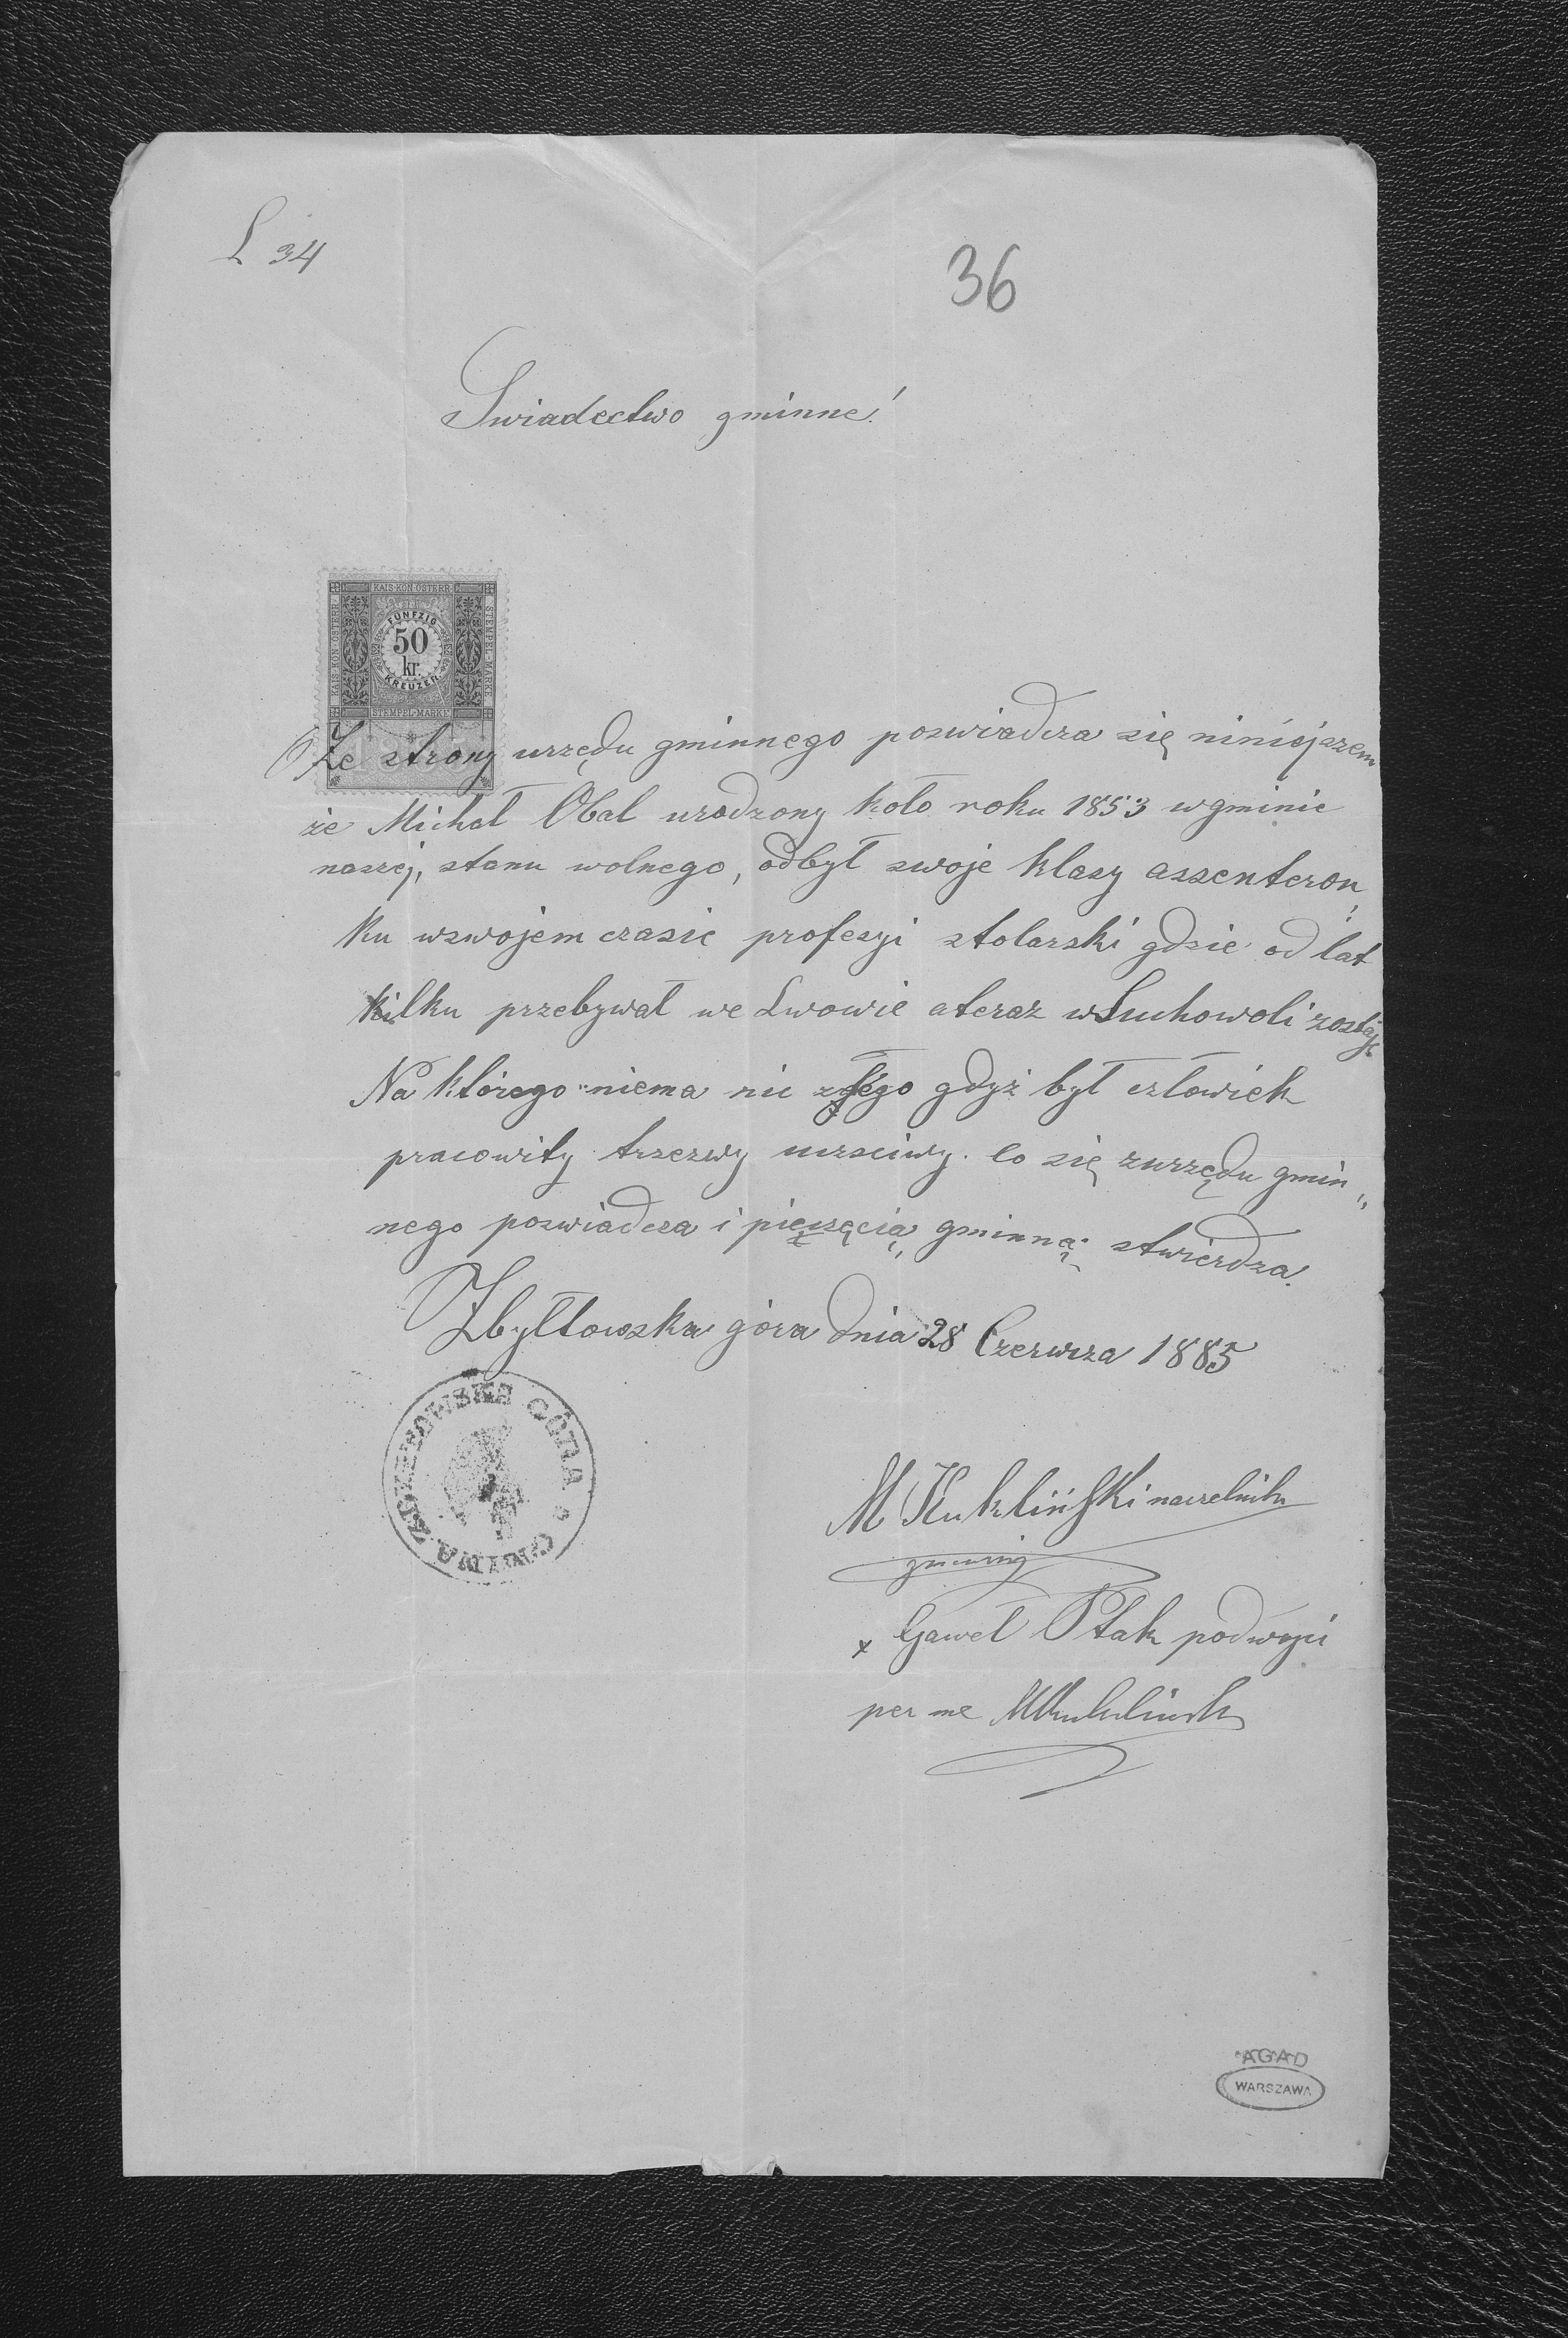 L 34
36
Swiadectwo gminne!
KAIS·KÖN·ÖSTERR·
KAIS·KÖN·ÖSTERR·
STEMPEL-MARKE
FÜNFZIG
50
kr.
KREUZER
STEMPEL-MARKE
Ze strony urzędu gminnego poswiadcza się niniejszem
że Michał Obal urodzony koło roku 1853 wgminie
naszej, stanu wolnego, odbył swoje klasy assenteron„
ku wswojem czasie profesyi stolarski gdzie od lat
kilku przebywał we Lwowie ateraz wSuchowoli zostaje
Na którego niema nic złego gdyż był człowiek
pracowity trzezwy uczciwy. Co się zurzędu gmin„
nego poswiadcza i pieczęcią gminną stwierdza.
Zbyłtowska góra dnia 28 Czerwca 1885
GMINA ZBYLTOWSKA GÓRA
M Kukliński naczelnik
gminny
x Gaweł Ptak podwojci
per me MKukliński
AGAD
WARSZAWA